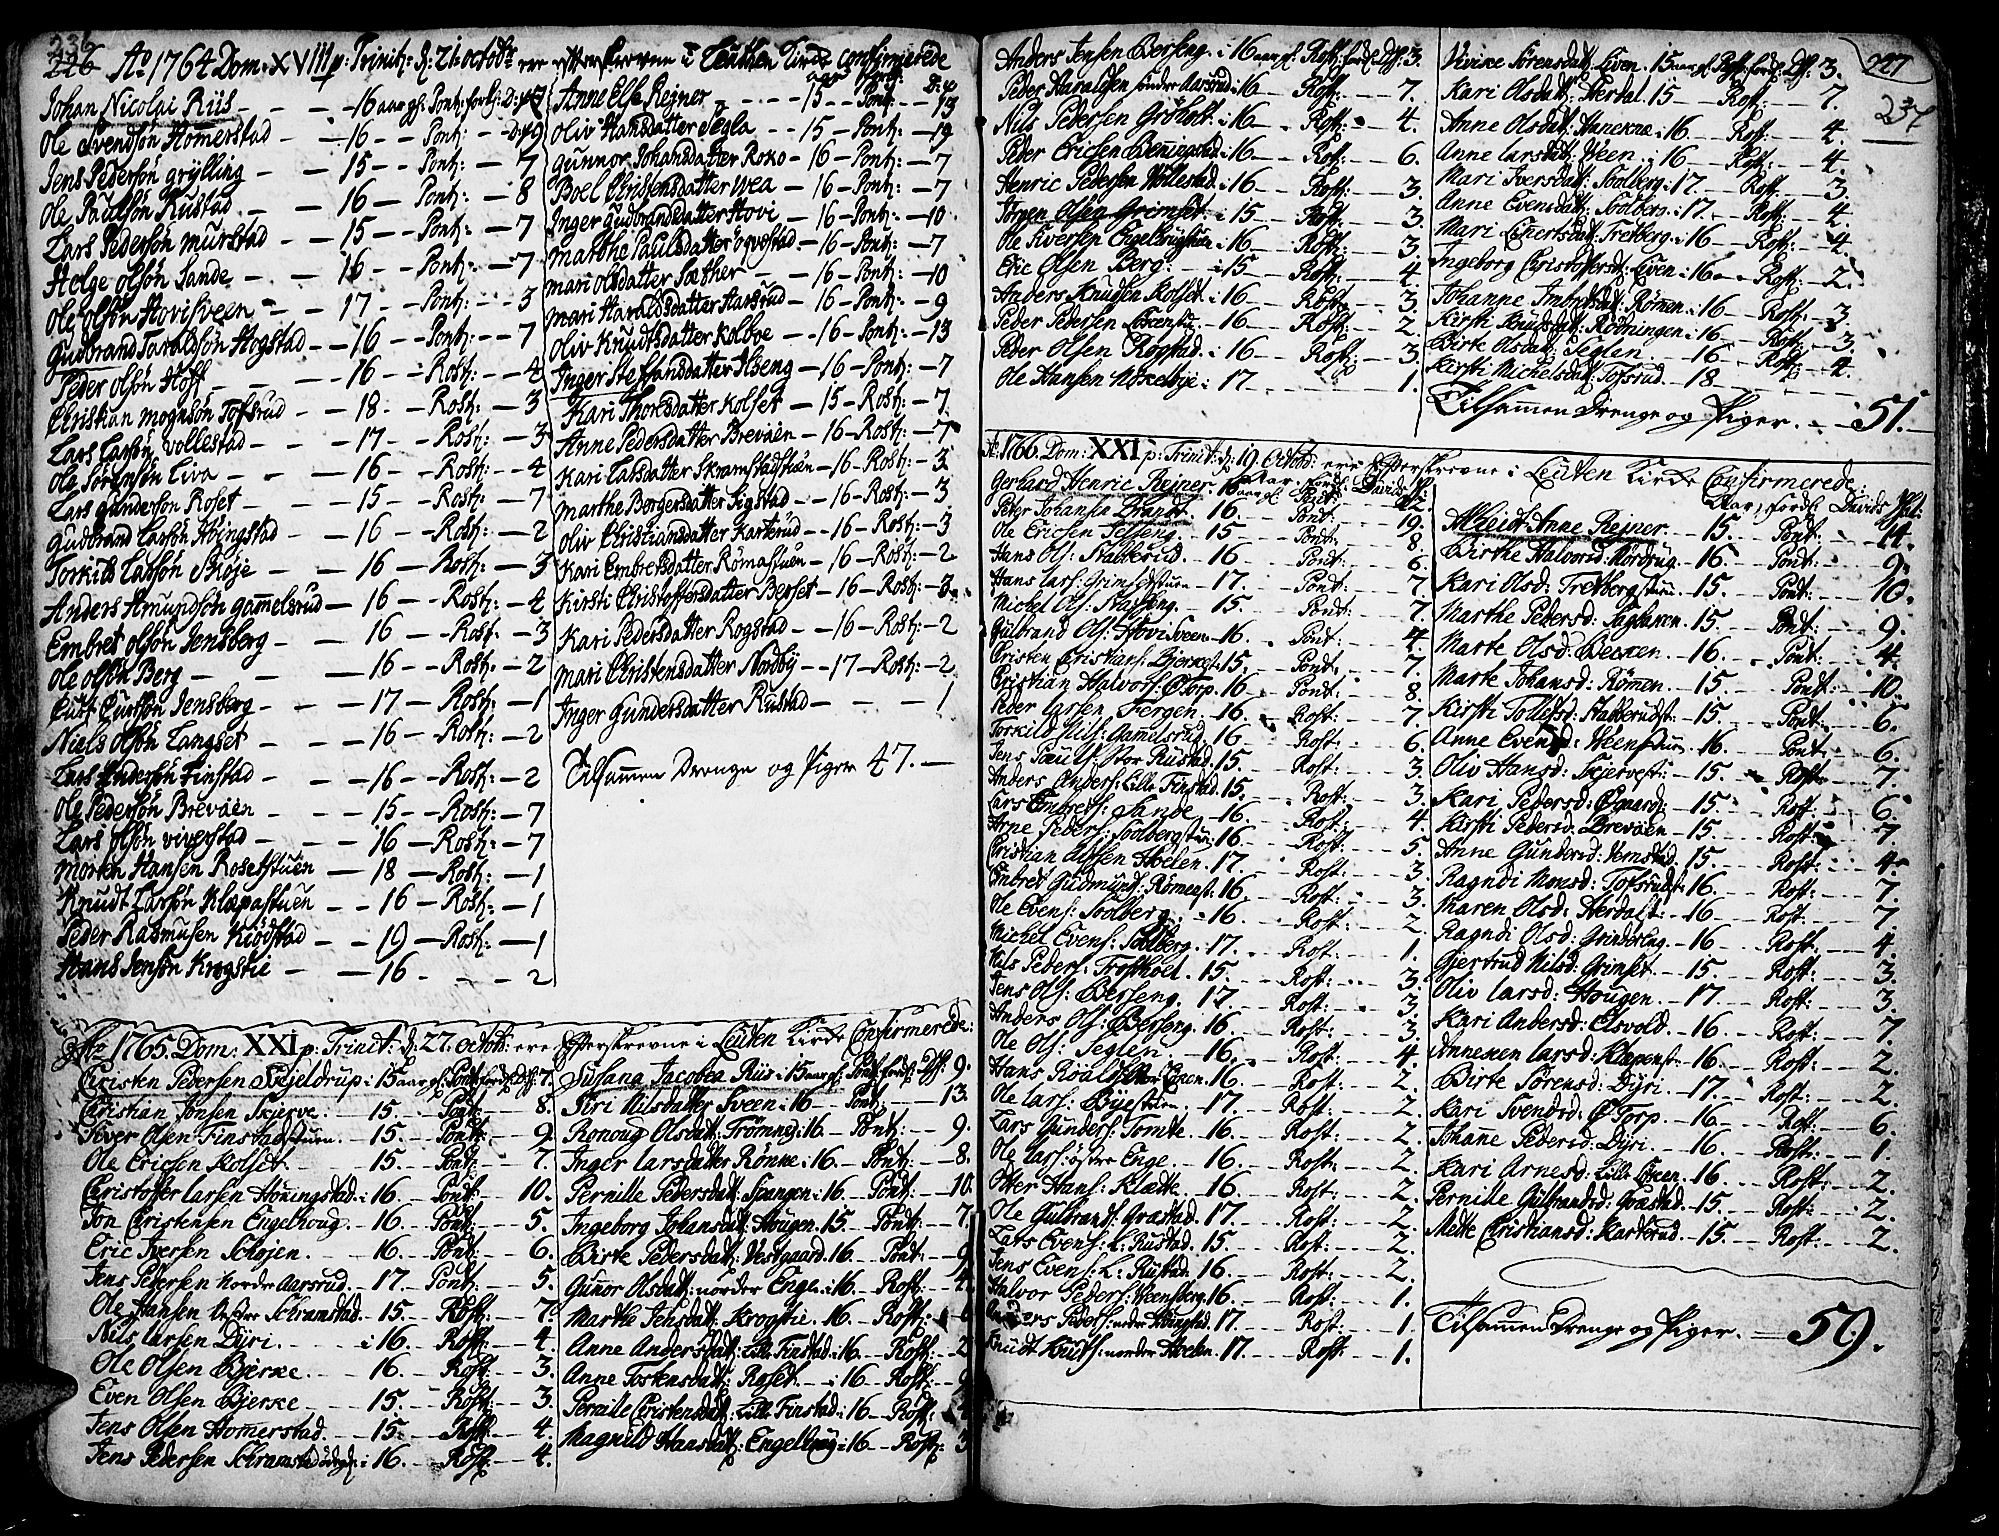 236
226 Ao 1764 Dom: XVIII p: Trinit: d: 21 octobr: ere efterskrevne i Leuthen Kirke confirmerede
Johan Nicolai Riis - - - 16 aar gl. Pont: D: 17
Ole Svendsøn Homerstad - 16 - Pont: - 9
Jens Pedersøn grylling - - 15 - - Pont: - - 7
Ole Paulsøn Rustad - - 16 - Pont: - - 8
Lars Pedersøn murstad - - 15 - - Pont: - - 7
Helge olsøn Sande - - 16 - - Pont: - - 7
Ole olsøn Hovisveen - - 17 - - Pont: - - 3
Gudbrand Taraldsøn Hogstad - 16 - - Pont: - - 7
Peder olsøn Hoff - - 16 - - Rost: - - 4
Christian mognsøn Tofsrud - 18 - Rost: - - 3
Lars Larsøn Vollestad - - 17 - - Rost: - 3
Ole Sørensøn Liva - - 16 - - Rost: - 4
Lars gundersøn Roset - - 15 - - Rost: - 7
Gudbrand Larsøn Høingstad - 16 - Rost: - 2
Torkild Larsøn Skøje - - 16 - Rost: - 3
Anders Amundsøn gammelsrud - 16 - - Rost: - 4
Embret olsøn Jensberg - - 16 - Rost: - 3
Ole olsøn Berg - - 16 - Rost: - 2
Gulf: Gulfsøn Jensberg - 17 - Rost: - 1
Niels olsøn Langset - - 16 - Rost: - 2
Lars Andersøn Finstad - 16 - Rost: - 2
Ole Pedersøn Brevaen - - 15 - Rost: - 7
Lars olsøn viverstad - - 16 - Rost: - 7
morten Hansen Rosetstuen - 18 - Rost: - 1
Knudt Larsøn Klæpastuen - 16 - Rost: - 1
Peder Rasmusen Kiødstad - 19 - Rost: - 1
Hans Jensøn Krogstie - - 16 - - - 2
Anne Else Rejner - - - 15 - Pont: - 13
Oliv Hansdatter Segla - - 15 - Pont: - 19
gunnor Johansdatter Roko - 16 - Pont: - 7
Boel Christensdatter Wea - 16 - Pont: - 7
Inger Gudbrandsdatter Hovi - 16 - Pont: - 10
marthe Paulsdatter ogvestad - 16 - Pont: - 7
mari Olsdatter Sæther - - 16 - Pont: - 10
mari Haraldsdatter Aarsrud - 16 - Pont: - 9
Oliv Knudtsdatter Kolboe - - 16 - Pont: - 13
Inger Steffansdatter Alseng - 16 - Pont: - 7
Kari Thoresdatter Kolset - 15 - Rost: - 7
Anne Pedersdatter Brevaen - 16 - Rost: - 7
Kari Larsdatter Skramstadstuen - 16 - Rost: - 3
Marthe Borgersdatter Sigstad - 16 - Rost: - 3
Oliv Christiansdatter Karterud - 16 - Rost: - 3
Kari Embretsdatter Römastuen - 16 - Rost: - 2
Kirsti Christoffersdatter Berset - 16 - Rost: - 3
Kari Pedersdatter Rogstad - - 16 - Rost: - 2
Mari Christensdatter Nordby - - 17 - Rost: - 2
Inger Gundersdatter Rustad - - - 1
Tilsammen Drenge og Piger 47. -
Ao 1765. Dom: XXI p: Trinit: d: 27. octob: ere Efterskrevne i Leuten Kirke Confirmerede:
Cristen Pedersen Skjeldrup i 15 aar gl. Pont: fordh: Dff: 7.
Cristian Jonsen Skjerve. 15. - Pont: - 8.
Siver Olsen Finstadstuen. - 15. - Pont: - 9.
Ole Ericsen Kolset. - 15. - Pont: - 7.
Cristoffer Larsen Honingstad: - 16. - Pont: - 10.
Jon Cristensen Engelhoug. - 16. - Pont: - 5.
Eric Iversen Schojen. - 16. - Pont: - 6.
Jens Pedersen Nordre Aarsrud. - 17. Pont: - 5.
Ole Hansen Østre Schramstad. - 15. - Rost: - 7.
Nils Larsen Dyri. - i 16. - Rost: - 4.
Ole Olsen Bjerke. - 16. - Rost: - 3.
Even Olsen Bjerke - 15. - Rost: - 3.
Jens Olsen Homerstad. - 15. - Rost: - 4.
Jens Pedersen Schramstad i 16. - Rost: - 4.
Susana Jacobea Riis - i 15 aar gl. Pont: fordh: Dff: 9.
Siri Nilsdatter Sveen - i 16 - Pont: - 13.
Ronoug Olsdatt: Trømnes: 16. - Pont: - 9.
Inger Larsdatter Rønne: i 16. - Pont: - 8.
Pernille Pedersdatt: Spangen: i 16. Pont: - 10.
Ingeborg Johansdatt: Hougen. 15. Pont: - 7.
Birte Pedersdatt: Vestgaard. 16. - Pont: - 9.
Gunor Olsdatt: nordre Enge - i 16. - Rost: - 4.
Marthe Jensdatt: Krogstie. 16. - Rost: -
Anne Andersdatt: Lille Finstad: i 16. - Rost: - 2
Anne Tostensdatt: Roset. - i 16 - Rost:
Pernille Cristensdatt: Lille Finstad: i 16 - Rost:
Magnild Hansdatt: Engelhoug i 16 - Rost: - 3
227
237
Anders Jensen Berseng. i 16 aar gl. Rost: fordh: Dff: 3.
Peder Haralsen søndre Aarsrud: i 16 - Rost: - 7.
Nils Pedersen Grøholt: i 16 - Rost: - 4.
Peder Ericsen Beningstad: i 16 - Rost: - 6.
Henric Pedersen Vollestad. i 16 - Rost: - 3.
Jørgen Olsen Grimset. - i 15. - Rost: - 3.
Ole Siversen Engelbrigtstuen: i 16 - Rost: - 3.
Eric Olsen Berg: - i 15. - Rost: - 4.
Anders Knudsen Kolset. i 16 - Rost: - 3.
Peder Pedersen - 16 - Rost: - 2.
Peder Olsen Rogstad. i 16 - Rost: - 3.
Ole Hansen Nokelbye: i 17. - - 1.
Vivike Sørensdatt: Even. 15 aar gl. Rost: fordh: Dff: 3.
Kari Olsdatt: Herdal. 15 - - Rost: - 7.
Anne Olsdatt: Hanekne: i 16 - Rost: - 4.
Anne Larsdatt: Hveen - i 16 - Rost: - 4.
Mari Iversdatt: Soolberg: i 17. - Rost: - 3.
Anne Evensdatt: Soolberg. i 17. - Rost: - 4.
Mari Einertsdatt: Tretberg: i 16 - Rost: - 4.
Ingeborg Cristoffersd: Even: i 16 - Rost: - 2.
Johanne Imbretsdat: Römen: i 16 - Rost: - 3
Kirsti Knudsdat: Rodningen: i 16. - Rost: - 3.
Birte Olsdat: Seglen. - 16. - Rost: - 4.
Kirsti Michelsdat: Tofsrud. 18 -
Tilsammen Drenge og Piger. - 51. -
Ao: 1766. Dom: XXI p: Trinit: d: 19. Octob: ere Efterskrevne i Leuten Kirke Confirmerede.
Gerhard Henric Rejner. 16 aar gl. Pont: Davids 12.
Peter Johansen Brandt. 16. - Pont: - 19.
Ole Ericsen Jesseng. 15 - - Pont: - 8.
Hans Ols: Nakkerud. 16 - Pont: - 6.
Hans Lars: Grimsedstuen - 17. - Pont: - 7.
Michel Ols: Nafseng. - 15. - Pont: - 7.
Gulbrand Ols: Hovisveen - 16. - Pont: - 4.
Cristen Cristians: Bjerkest. 15. - Pont: - 7.
Cristian Halvors: Ø: Torp. 16. - Pont: - 8.
Peder Larsen Fergen. - 16. - Rost: - 7.
Torkild Nils: Gamelsrug. 16 - Rost: - 6.
Jens Pauls: Stor Rustad. 15. - Rost: - 3.
Anders Anders: Lille Finstad. 15. - Rost: - 3.
Lars Embrets: Sande - 16. - Rost: - 4.
Arne Peders: Soolbergstuen 16. - Rost: - 5.
Cristian Alfsen Hoelen. 17. - Rost: - 3.
Embret Gudmunds: Römenst. 16. - Rost: - 3.
Ole Evens: Soolberg. - 16. - Rost: - 2.
Michel Evens: Solberg. 17. - Rost: - 1.
Nils Peders: Trosthoel. 15. - Rost: - 3.
Jens Ols: Berseng. 17. - Rost: - 3.
Anders Ols: Berseng. 16. - Rost: - 3.
Ole Ols: Seglen. - 16. - Rost: - 4.
Hans Roalds: 16. - Rost: - 2.
Ole Lars: Byestuen - 17. - Rost: - 2.
Lars Gunders: Tomte. 16. - Rost: - 2.
Ole Lars: østre Enge. - 16. - Rost: - 2.
Otter Hans: Klædte. 16. - Rost: - 2.
Ole Gulbrands: Grastad. 17. - Rost: - 2.
Lars Evens: L: Rustad. 15. - Rost: - 2.
Jens Evens: L: Rustad. 16. - Rost: - 2.
Halvor Peders: Veensberg. 16. - Rost: - 1.
Anders Peders: neder Honstad. 17. - Rost: - 1.
Knudt Knuts: nordre Hoelen. 17. - Rost: - 1.
Alheidt Anne Rejner. - 15. - Pont: - 14.
Birthe Halvorsd: Nordrug. 16. - Pont: - 9.
Kari Olsd: Tretbergstuen. 15. - Pont: - 10.
Marthe Pedersd: Tagbaken. 15. - Pont: - 9.
Marte Olsd: Becken. - 16. - Pont: - 4.
Marte Johansd: Römen. - 15. - Pont: - 10.
Kirsti Tollefsd: Nakkerudst: - 15. - Pont: - 6.
Anne Evensd: Veenstuen. 16. - Pont: - 6.
Oliv Hansd: Skjervest: - 15. - Rost: - 7.
Kari Pedersd: Øgaard: - 15 - Rost: - 6.
Kirsti Pedersd: Brevaen. - 15. - Rost: - 7.
Anne Gundersd: Vernstad. 15. - Rost: - 4.
Ragndi Monsd: Tofsrudst: 16. - Rost: - 7.
Maren Olsd: Herdalst: - 16. - Rost: - 7.
Ragndi Olsd: Grindereng. - 16. - Rost: - 4.
Gjertrud Nilsd: Grimset. - 15. - Rost: - 3.
Oliv Larsd: Hougen. - 17. - Rost: - 3.
Kari Andersd: Elsvold. - 16. - Rost: - 7.
Anneken Larsd: Klæpenst: - 16. - Rost: - 2.
Birte Sørensd: Dyri. - 17. - Rost: - 2.
Kari Svendsd: Ø Torp - 16. - Rost: - 6.
Johane Pedersd: Dyri. - 16. - Rost: - 1.
Kari Arnesd: Lille Eken. 16. - Rost: - 2.
Pernille Gulbrandsd: Grastad. - 15. - Rost: - 2.
Mette Cristiansd: Karterud. - 15. - Rost: - 2.
Tilsammen Drenge og Piger. - 59.